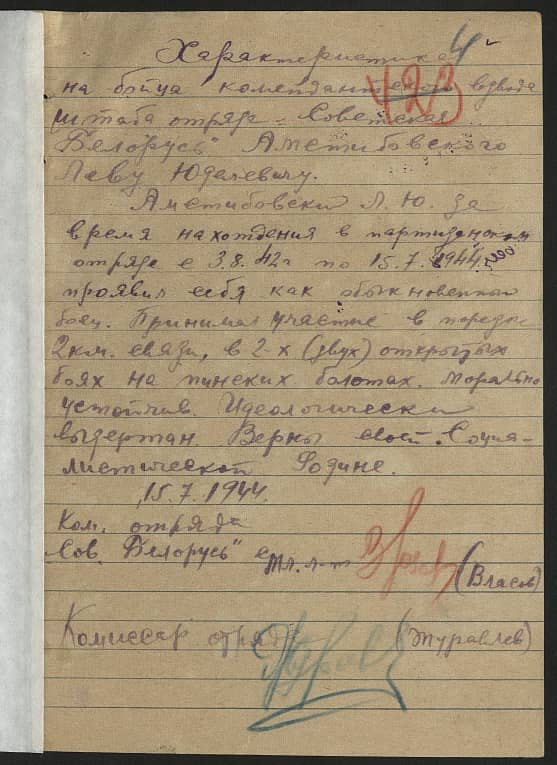 Характеристика 4
на бойца комендантский взвода 423
штаба отряда „Советская
Белорусь" Аметибовского
Леву Юделевичу.
Аметибовски Л. Ю. за
время нахождения в партизанском
отряде с 3.8.42г по 15.7.1944 года
проявил себя как обыкновенный
боец. Принимал участие в
2км. связи, в 2-х (двух) открытых
боях на пинских болотах. Морально
устойчив. Идеологически
выдержан. Верны своей Социа-
листической Родине.
15.7.1944.
Ком. отряда
Сов. Белорусь"
мл. л-т (Власов)
Комиссар отряда (Журавлев)